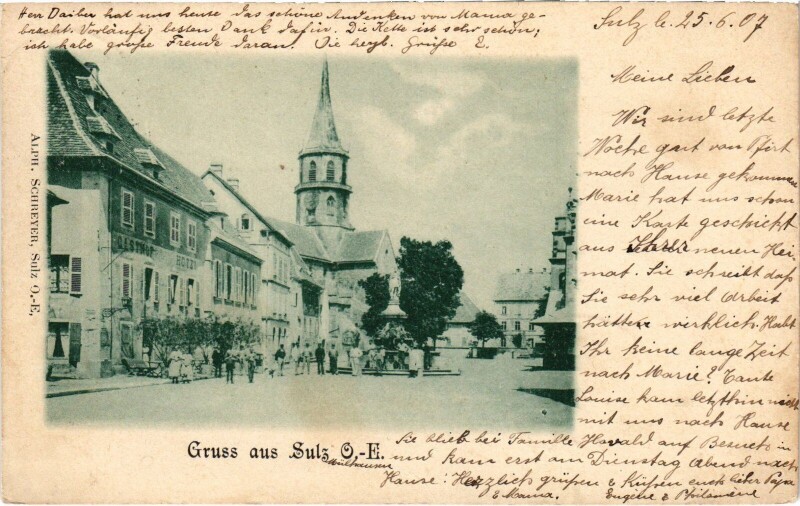 Herr Daiber hat uns heute das schöne Andenken von Mama ge-
bracht. Vorläufig besten Dank dafür. Die Kette ist sehr schön;
ich habe große Freude daran. Die hergl. Grüße E.
Sulz d. 25.6.07
Meine Lieben
Wir sind letzte
Woche gut von Pfirt
nach Hause gekommen
Marie hat uns schon
eine Karte geschickt
aus neuen Hei,
mat. Sie schreibt daß
Sie sehr viel Arbeit
hätten wirklich. Habt
Ihr keine lange Zeit
nach Marie? Tante
Louise kam letzthin nicht
mit uns nach Hause
Sie blieb bei Familie Havald auf Besuch in
Mülhausen
und kam erst am Dienstag Abend nach
Hause! Herzlich grüßen & Küßen euch lieber Papa
& Mama. Eugénie & Philomène
ALPH. SCHREYER, Sulz O.-E.
GASTHOF
HOTEL
Gruss aus Sulz O.-E.